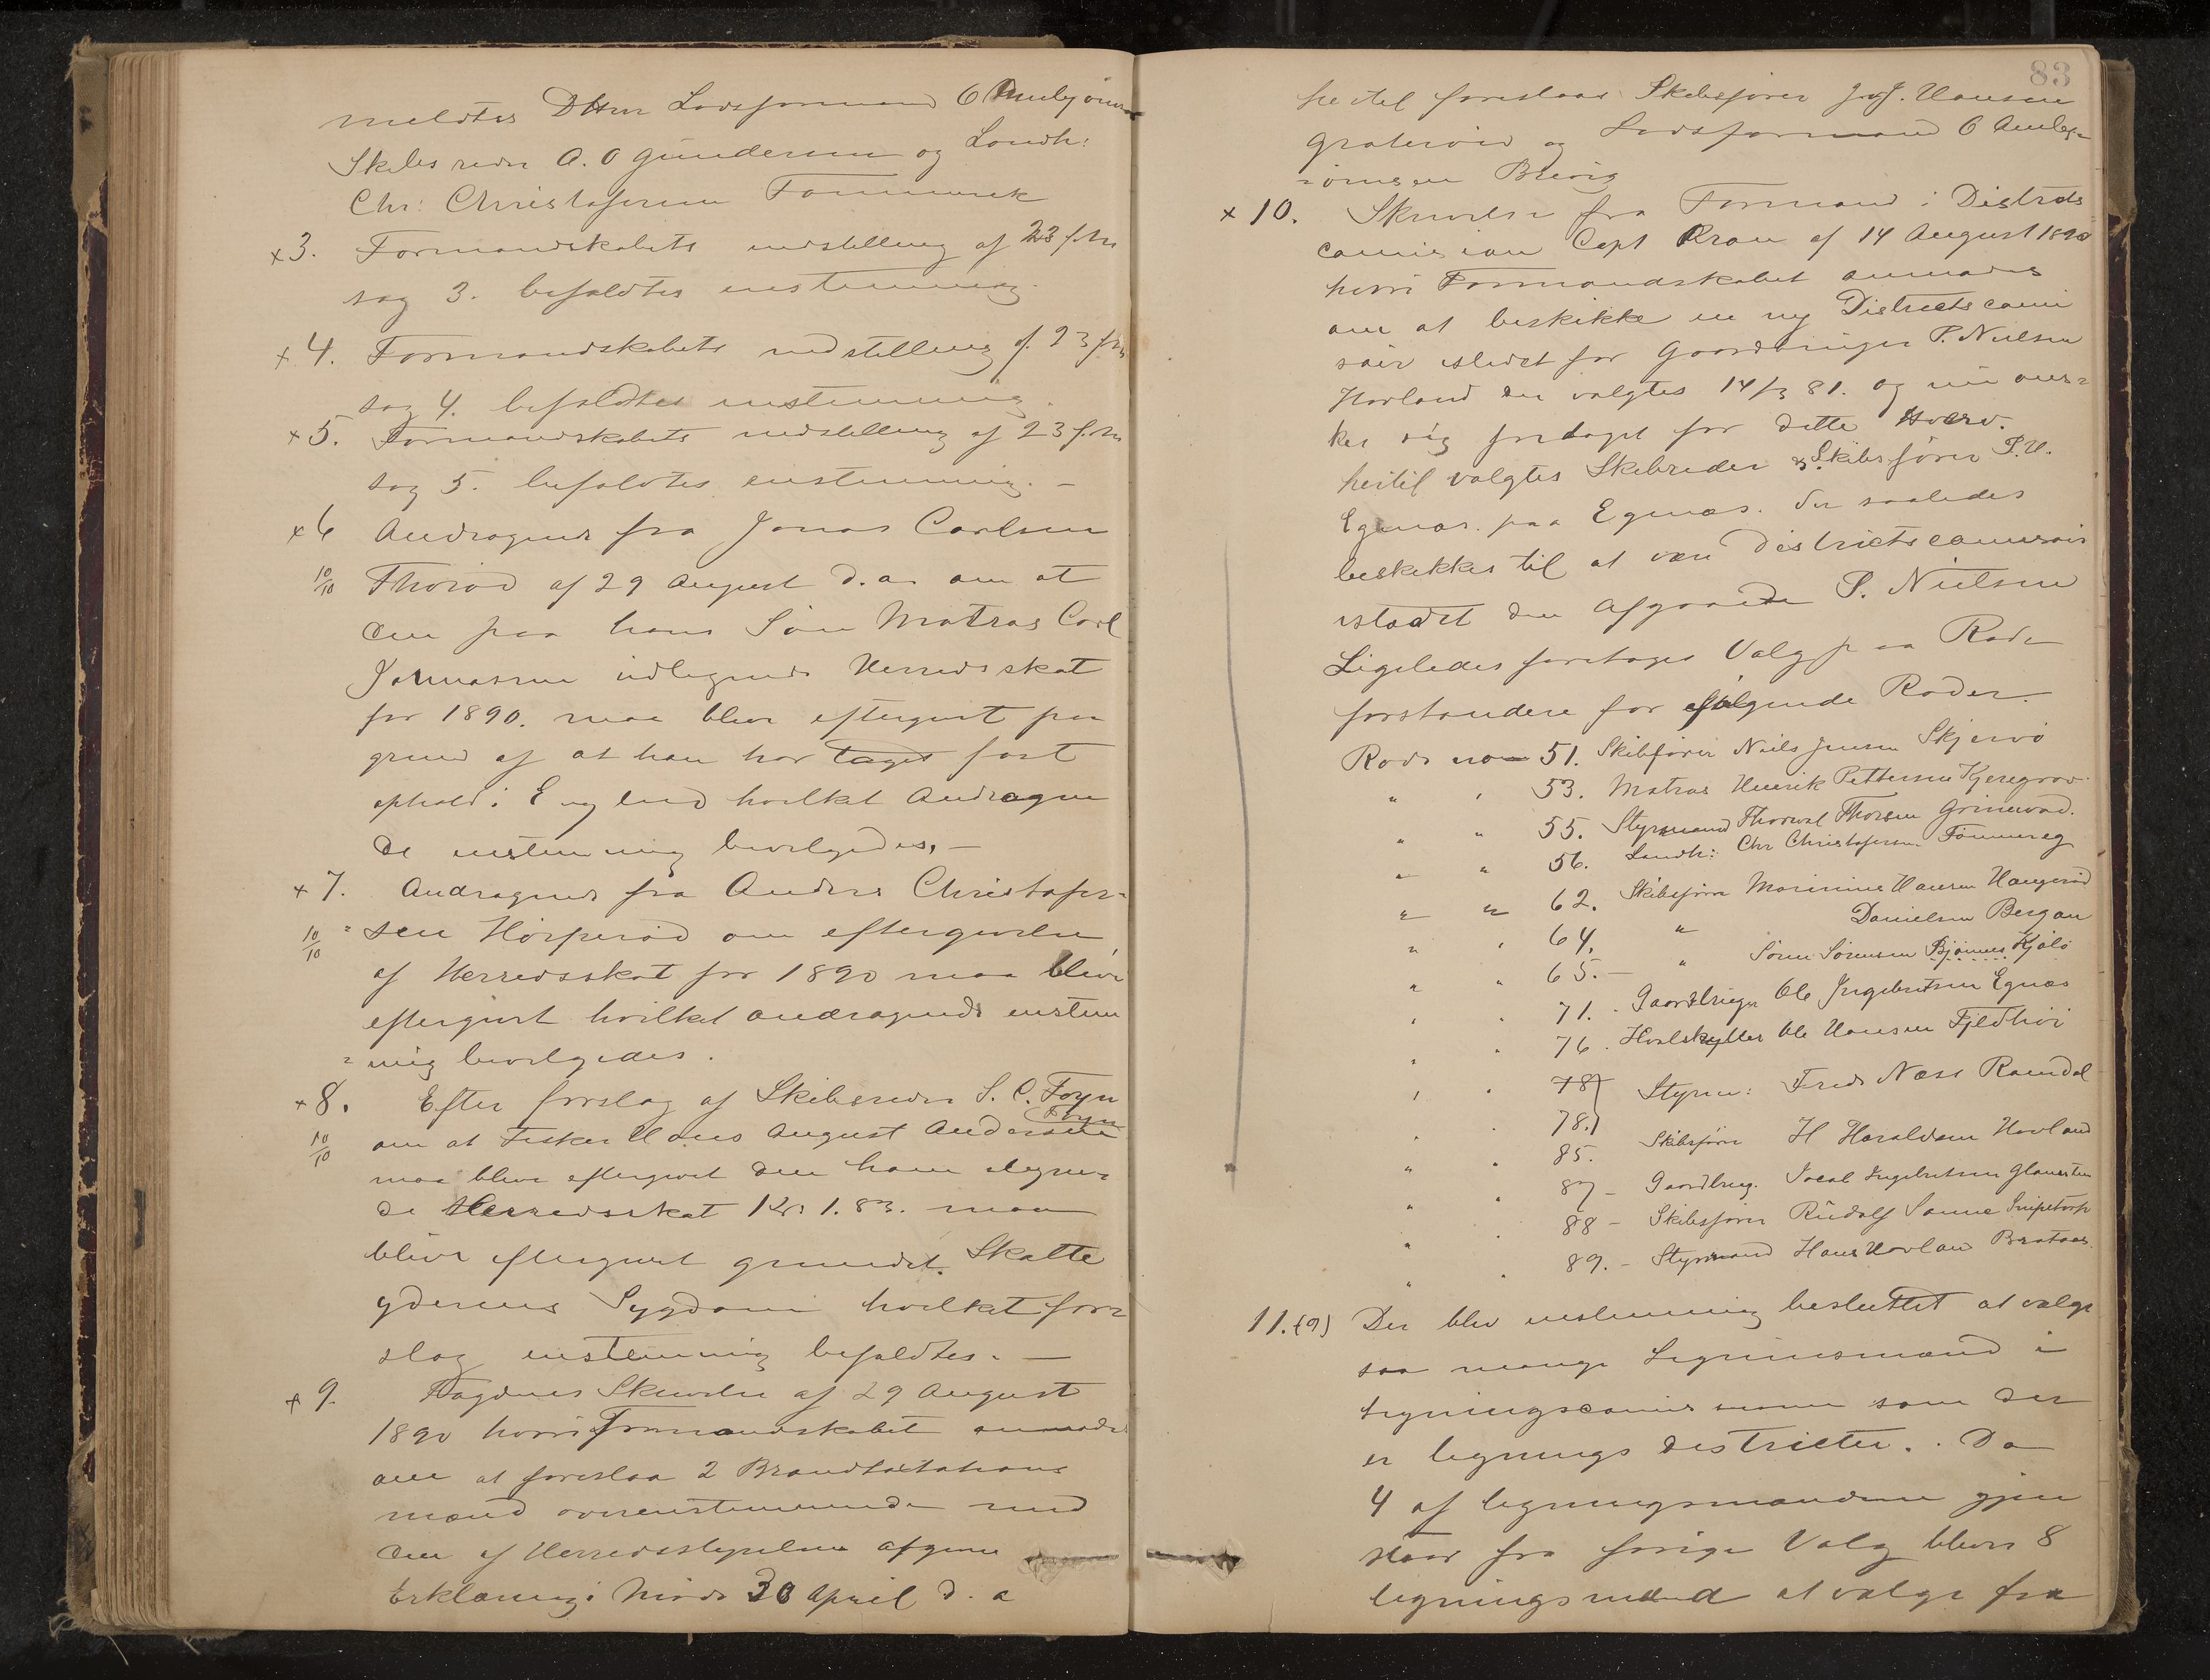 meldtes DHrr Lodsformand O Ambjörnsen
Skibsreder A. O Gundersen og Landh:
Chr: Christofersen Tømmerek
x 3. Formandskabets indstilling af 23 f. m
sag 3. bifaldtes enstemmig.
x 4. Formandskabets indstilling af 23 f. m
sag 4. bifaldtes enstemmig.
x 5. Formandskabets indstilling af 23 f. m
sag 5. bifaldtes enstemmig. —
x 6 Andragende fra Jonas Carlsen
10/10 Thorød af 29 August d. a. om at
den paa hans Søn Matros Carl
Jonnassen udlignede Herredsskat
for 1890. maa blive eftergivet paa
grund af at han har taget fast
ophold i England hvilket Andragen
de enstemmig bevilgedes. —
x 7. Andragende fra Anders Christofer=
10/10 =sen Hörperöd om eftergivelse
af Herredsskat for 1890 maa blive
eftergivet hvilket andragende enstem
=mig bevilgedes.
x 8. Efter forslag af Skibsreder S. C. Foyn
Foyn
10/10 om at Fisker Hans August Andersen
maa blive eftergivet den ham ilagne=
de Herredsskat Kr. 1.83. maa
blive eftergivet grundet Skatte
yderens Sygdom hvilket for=
slag enstemmig bifaldtes. —
x 9. Fogdens Skrivelse af 29 August
1890 hvori Formandskabet anmodes
om at foreslaa 2 Brandtaxtations
mænd overenstemmende med
den af Herredsstyrelsen afgivne
Erklæring i Møde 30 April d. a
83
hertil foreslaaes Skibsfører J. Hansen
Graterød og Lodsformand O Ambj=
=ørnsen Brevig
x 10. Skrivelse fra Formand i Districts
comision Capt Kran af 14 August 1890
hvori Formandskabet anmodes
om at beskikke en ny Districtscomi
sair istedet for Gaardbruger P. Nielsen
Havland der valgtes 14/3 81. og nu øns=
ker sig fritaget for dette Hverv.
hertil valgtes Skibsreder & Skibsfører P. H.
Egenæs. paa Egenæs. der saaledes
beskikkes til at være Districtscomisair
istædet den afgaaede P. Nielsen
Ligeledes foretoges Valg paa Rode
forstandere for følgende Roder.
Rode no 51. Skibsfører Niels Jensen Skjervø
" " 53. Matros Henrik Pettersen Kjeregrav.
" " 55. Styrmand Thorval Thorsen Grimerød.
" " 56. Landh: Chr Christofersen Tømmereg
" " 62. Skibsfører Marinius Hansen Haugerød
" " 64. " Danielsen Bergan
" " 65. — " Sören Sörensen Bjönnes Kjölö
" " 71. Gaardbruger Ole Ingebretsen Egnæs
" " 76. Hvalskytter Ole Hansen Fjeldhöi
" " 78 } Styrm: Fred. Næss Ramdal
" " 78. }
" " 85. Skibsfører H Haraldsen Hovland
" " 87 — Gaardbrug. Jacob Ingebretsen
" " 88 — Skibsfører Rudolf Sanne Snipetorp
" " 89. — Styrmand Hans Hovland Brataas.
11. (9) Der blev enstemmig besluttet at vælge
saa mange Ligningsmænd i
Ligningscomisionen som der
er lignings districter. Da
4 af ligningsmændene gjen
staar fra forige Valg bliver 8
ligningsmænd at valge fra